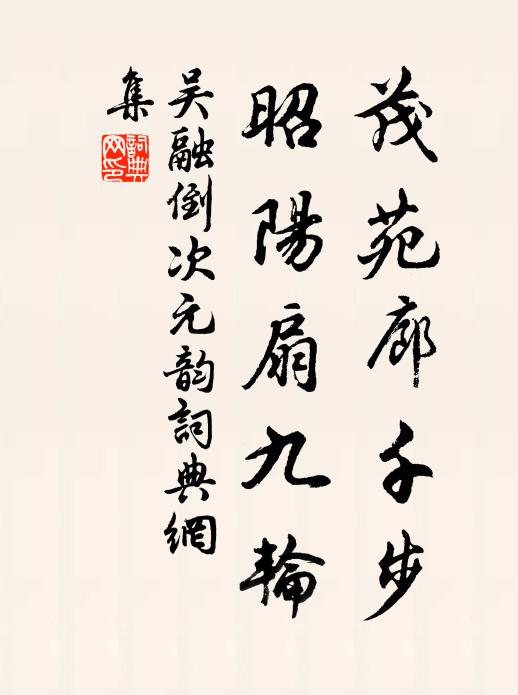 茂苑廊千步
昭陽扇九輪
吴融倒次元韵詞典網
集
詞典網印